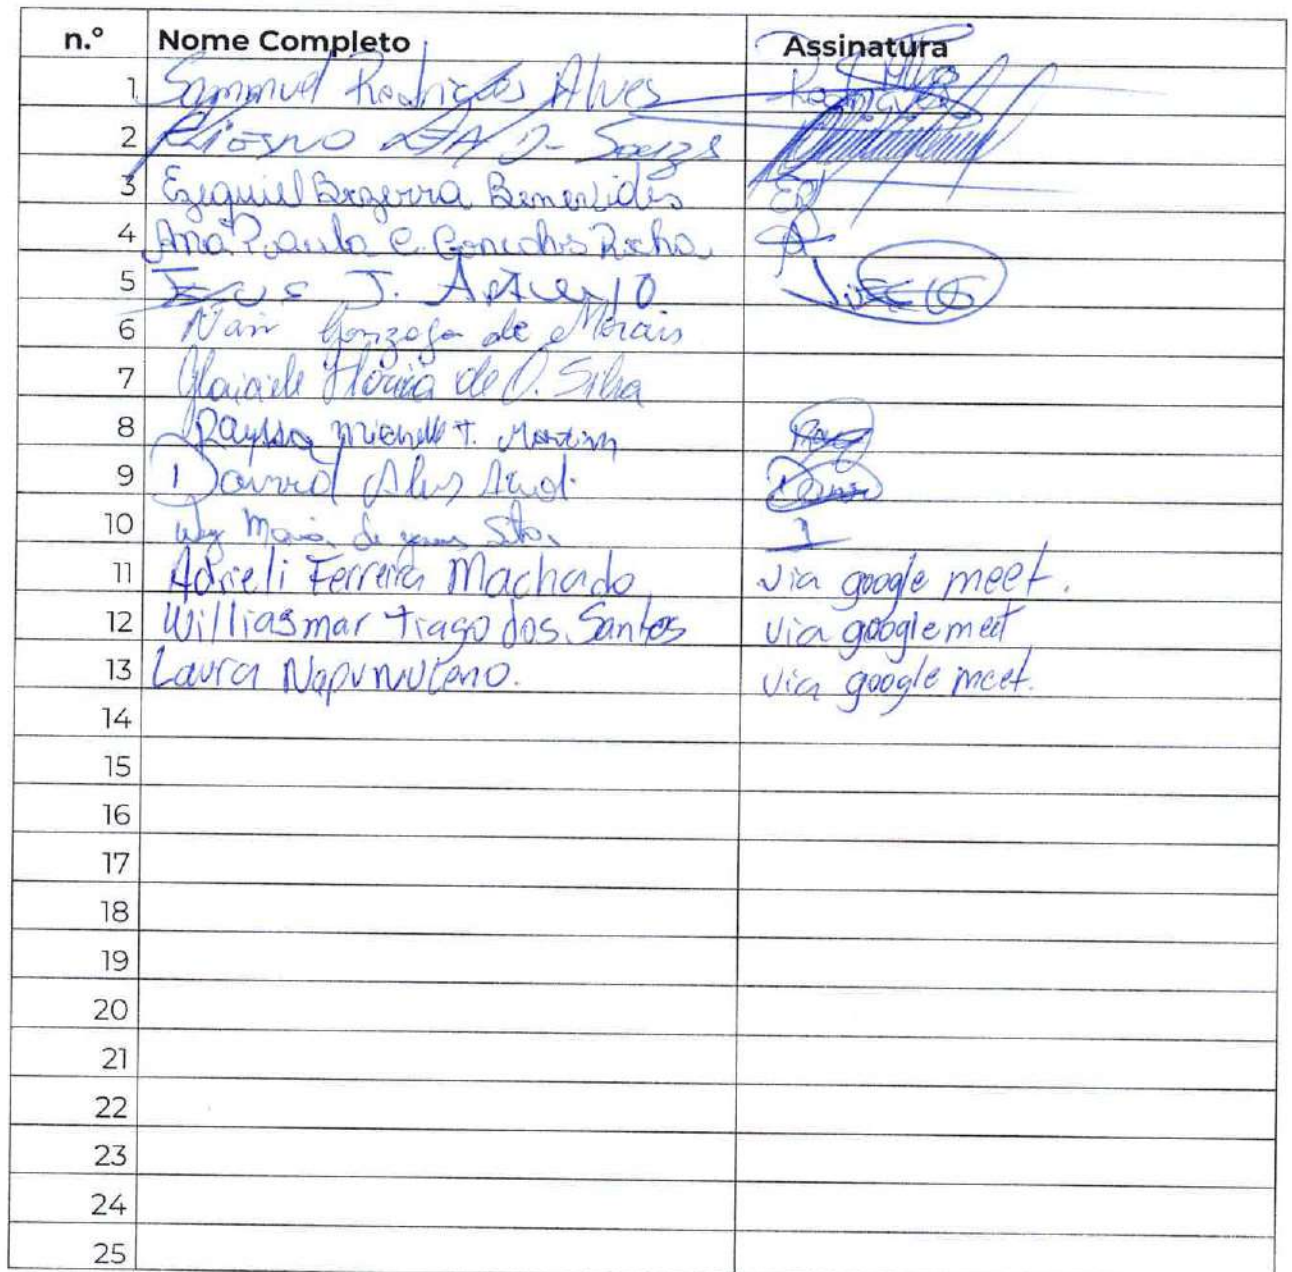 n.º Nome Completo Assinatura
1 Sammuel Rodrigues Alves Rodrigues
2 Souza
3 Ezequiel Bezerra Benevides
4 Ana Paula C. Goncalves Rocha
5 J.
6 Nair Gonzaga de Morais
7 de O. Silva
8 Rayssa Michelle T. Martins
9 David Alves
10 Maria de
11 Adrieli Ferreira Machado via google meet.
12 Williasmar Tiago dos Santos via google meet
13 Laura Napumuceno. via google meet.
14
15
16
17
18
19
20
21
22
23
24
25